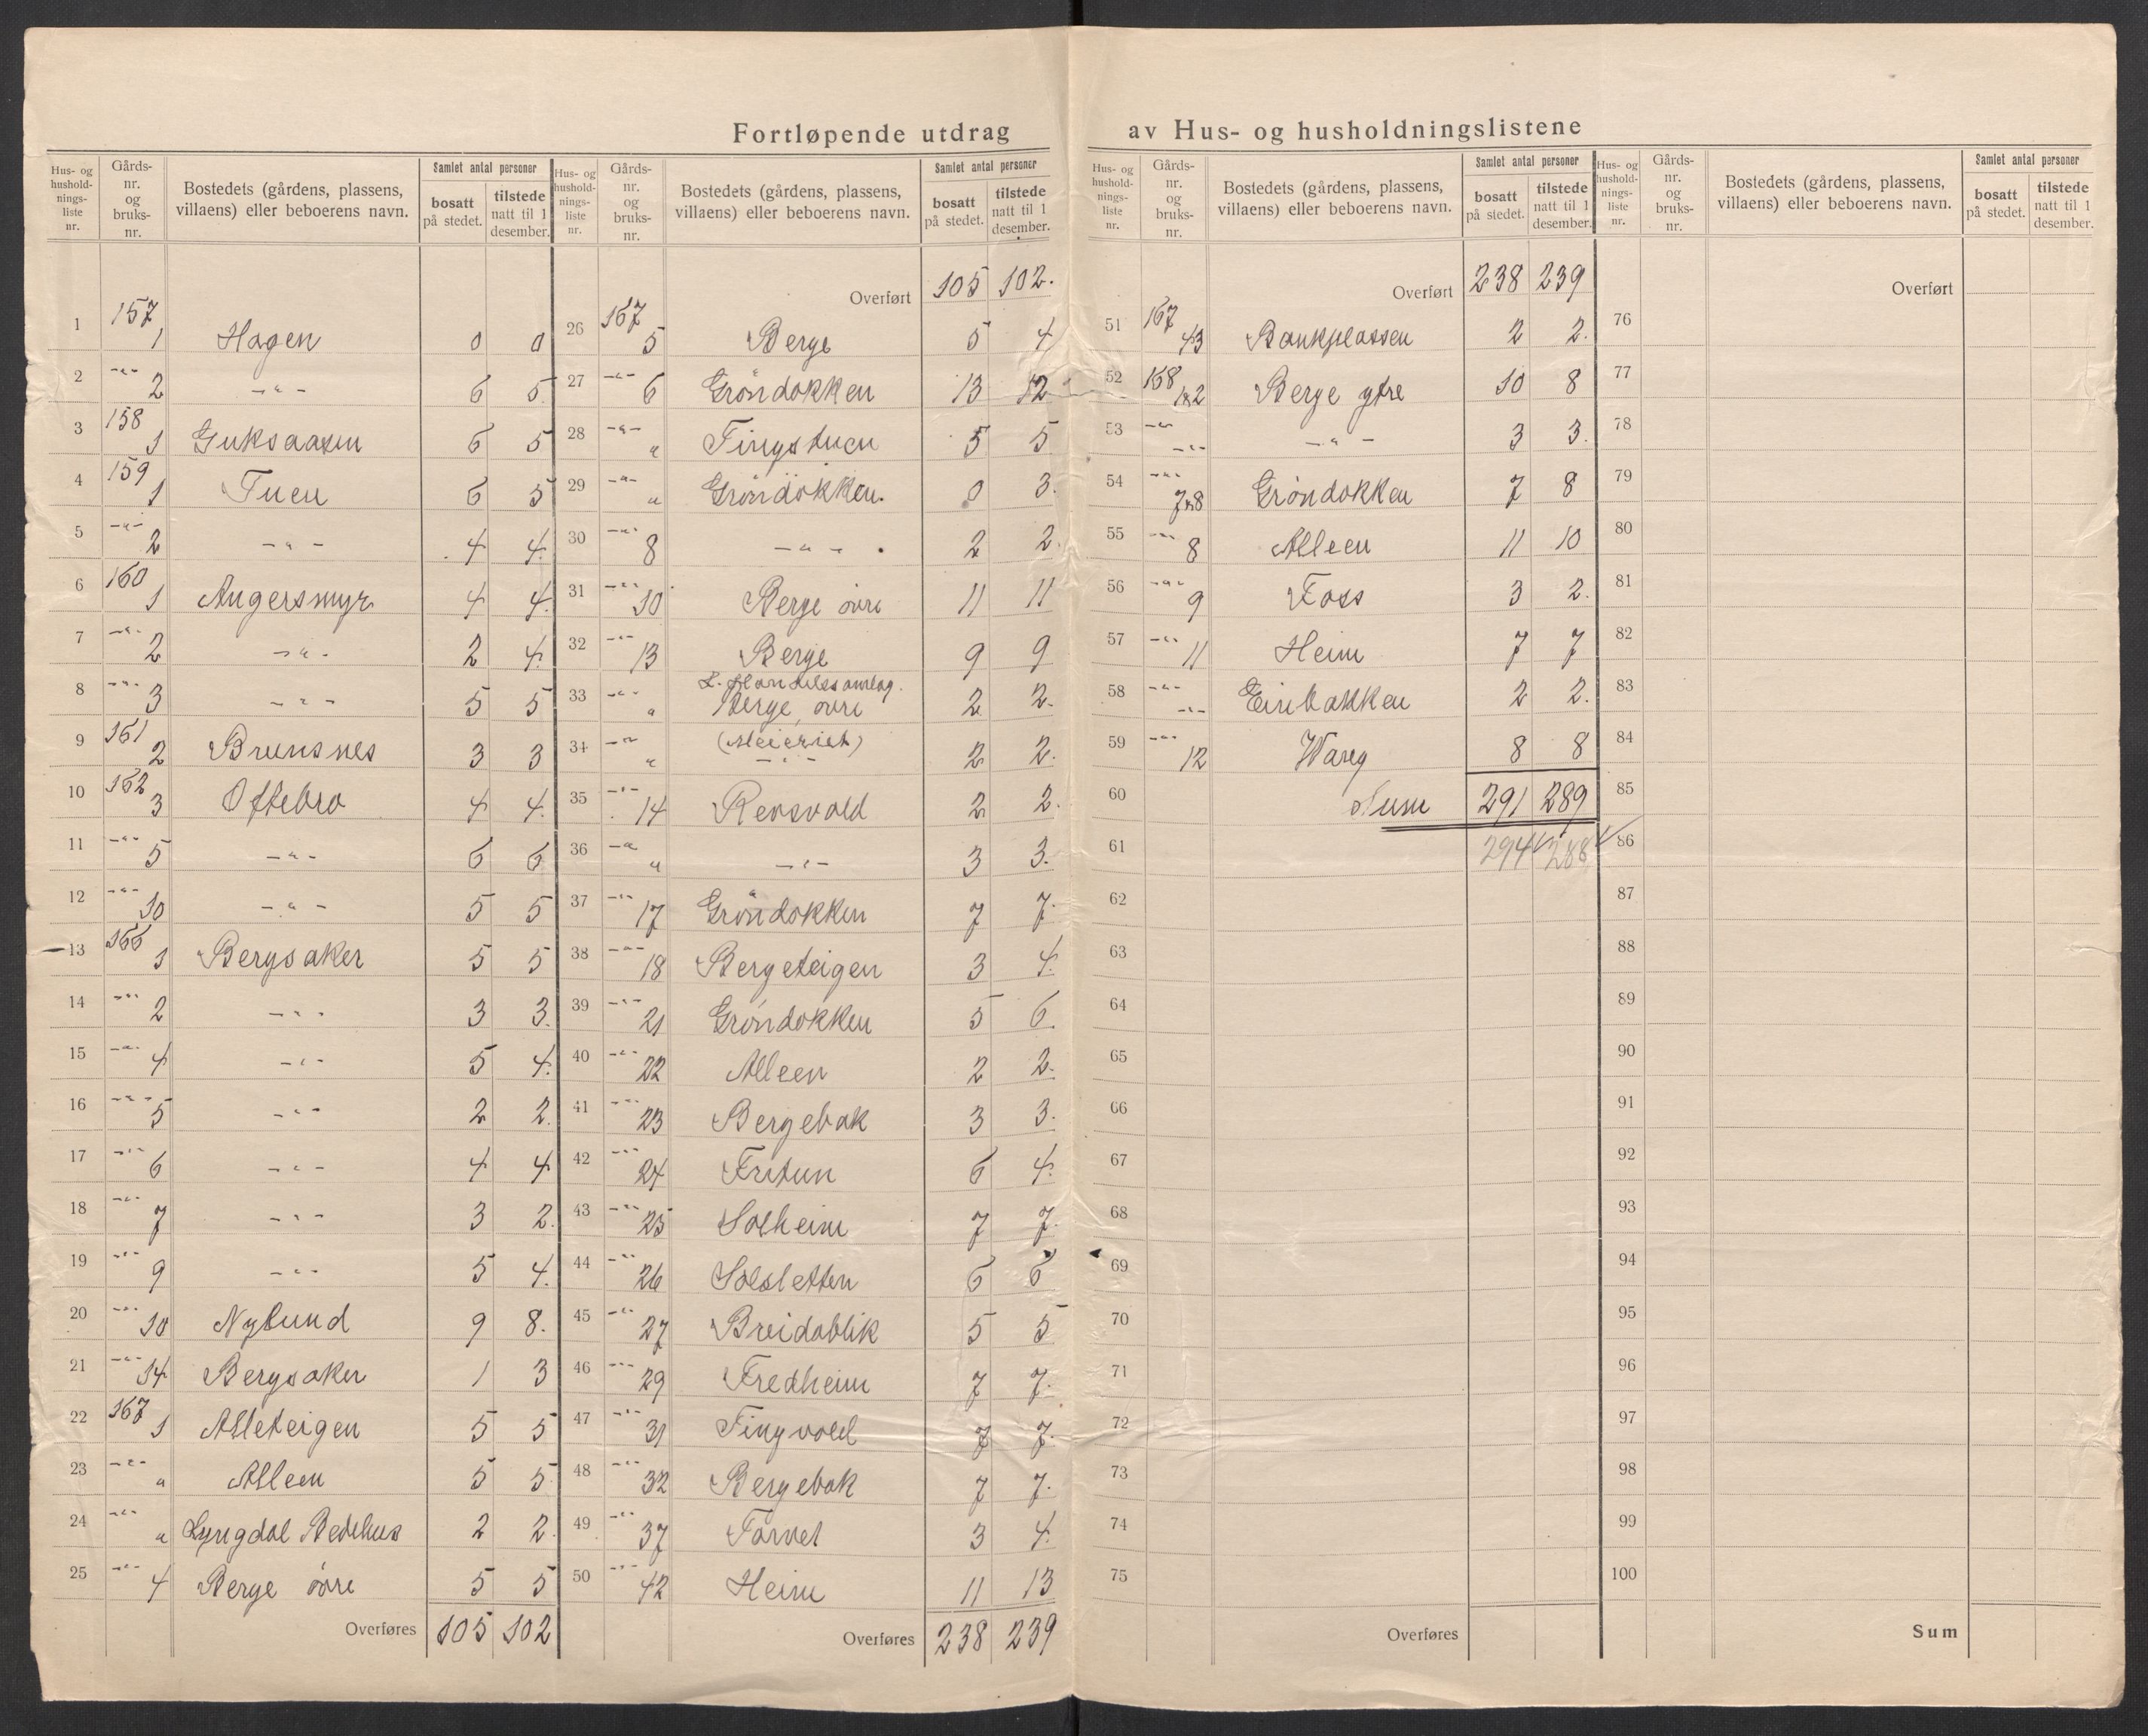 Fortløpende utdrag av Hus- og husholdningslistene
Hus- og hushold-nings-liste nr. | Gårds-nr. og bruks-nr. | Bostedets (gårdens, plassens, villaens) eller beboerens navn. | Samlet antal personer | bosatt på stedet. | tilstede natt til 1 desember.
1 157 1 Hagen 0 0
2 -"- 2 -"- 6 5
3 158 1 Guksaasen 6 5
4 159 1 Tuen 6 5
5 -"- 2 -"- 4 4.
6 160 1 Angersmyr 4 4.
7 -"- 2 -"- 2 4.
8 -"- 3 -"- 5 5
9 161 2 Brunsnes 3 3
10 162 3 Oftebro 4 4.
11 -"- 5 -"- 6 6
12 -"- 10 -"- 5 5
13 166 1 Bergsaker 5 5
14 -"- 2 -"- 3 3.
15 -"- 4 -"- 5 4.
16 -"- 5 -"- 2 2.
17 -"- 6 -"- 4 4
18 -"- 7 -"- 3 2.
19 -"- 9 -"- 5 4.
20 -"- 10 Nylund 9 8.
21 -"- 14 Bergsaker 1 3
22 167 1 Alleteigen 5 5
23 -"- " Alleen 5 5
24 -"- " Lyngdal Bedehus 2 2.
25 -"- 4 Berge övre 5 5
Overføres 105 102
Hus- og hushold-nings-liste nr. | Gårds-nr. og bruks-nr. | Bostedets (gårdens, plassens, villaens) eller beboerens navn. | Samlet antal personer | bosatt på stedet. | tilstede natt til 1 desember.
Overført 105 102.
26 167 5 Berge 5 4
27 -"- 6 Gröndokken 13 12
28 -"- " Tingstuen 5 5
29 -"- " Gröndokken. 0 3.
30 -"- 8 -"- 2 2.
31 -"- 10 Berge övre 11 11
32 -"- 13 Berge 9 9
33 -"- " L. Handelssamlag. Berge, övre 2 2.
34 -"- " (Meieriet) -"- 2 2.
35 -"- 14 Rosvold 2 2.
36 -"- " -"- 3 3.
37 -"- 17 Gröndokken 7 7.
38 -"- 18 Bergeteigen 3 4.
39 -"- 21 Gröndokken 5 6.
40 -"- 22 Alleen 2 2.
41 -"- 23 Bergebak 3 3.
42 -"- 24 Fretun 6 4.
43 -"- 25 Solheim 7 7.
44 -"- 26 Solsletten 6 6
45 -"- 27 Breidablik 5 5
46 -"- 29 Fredheim 7 7.
47 -"- 31 Tingvold 7 7.
48 -"- 32 Bergebak 7 7.
49 -"- 37 Torvet 3 4.
50 -"- 42 Heim 11 13
Overføres 238 239
Hus- og hushold-nings-liste nr. | Gårds-nr. og bruks-nr. | Bostedets (gårdens, plassens, villaens) eller beboerens navn. | Samlet antal personer | bosatt på stedet. | tilstede natt til 1 desember.
Overført 238 239
51 167 43 Bankplassen 2 2.
52 168 1&2 Berge ytre 10 8
53 -"- -"- -"- 3 3.
54 -"- 7&8 Gröndokken 7 8
55 -"- 8 Alleen 11 10
56 -"- 9 Foss 3 2.
57 -"- 11 Heim 7 7
58 -"- -"- Einbakken 2 2.
59 -"- 12 Wareg 8 8
60 Sum 291 289
61 294 288
62
63
64
65
66
67
68
69
70
71
72
73
74
75
Overføres
Hus- og hushold-nings-liste nr. | Gårds-nr. og bruks-nr. | Bostedets (gårdens, plassens, villaens) eller beboerens navn. | Samlet antal personer | bosatt på stedet. | tilstede natt til 1 desember.
Overført
76
77
78
79
80
81
82
83
84
85
86
87
88
89
90
91
92
93
94
95
96
97
98
99
100
Sum